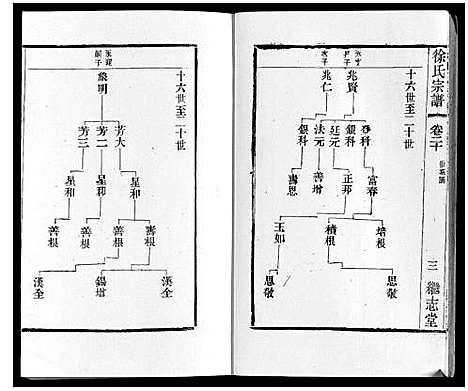 徐氏宗譜
卷二十
三
繼志堂
十六世至二十世
兆賢
兆仁
春科
銀科
廷元
法元
銀科
富春
正邦
善增
壽恩
培根
積根
玉如
思敬
思敬
十六世至二十世
芳大
芳二
芳三
星和
星和
星和
壽根
善根
善根
善根
漢全
錫增
漢全